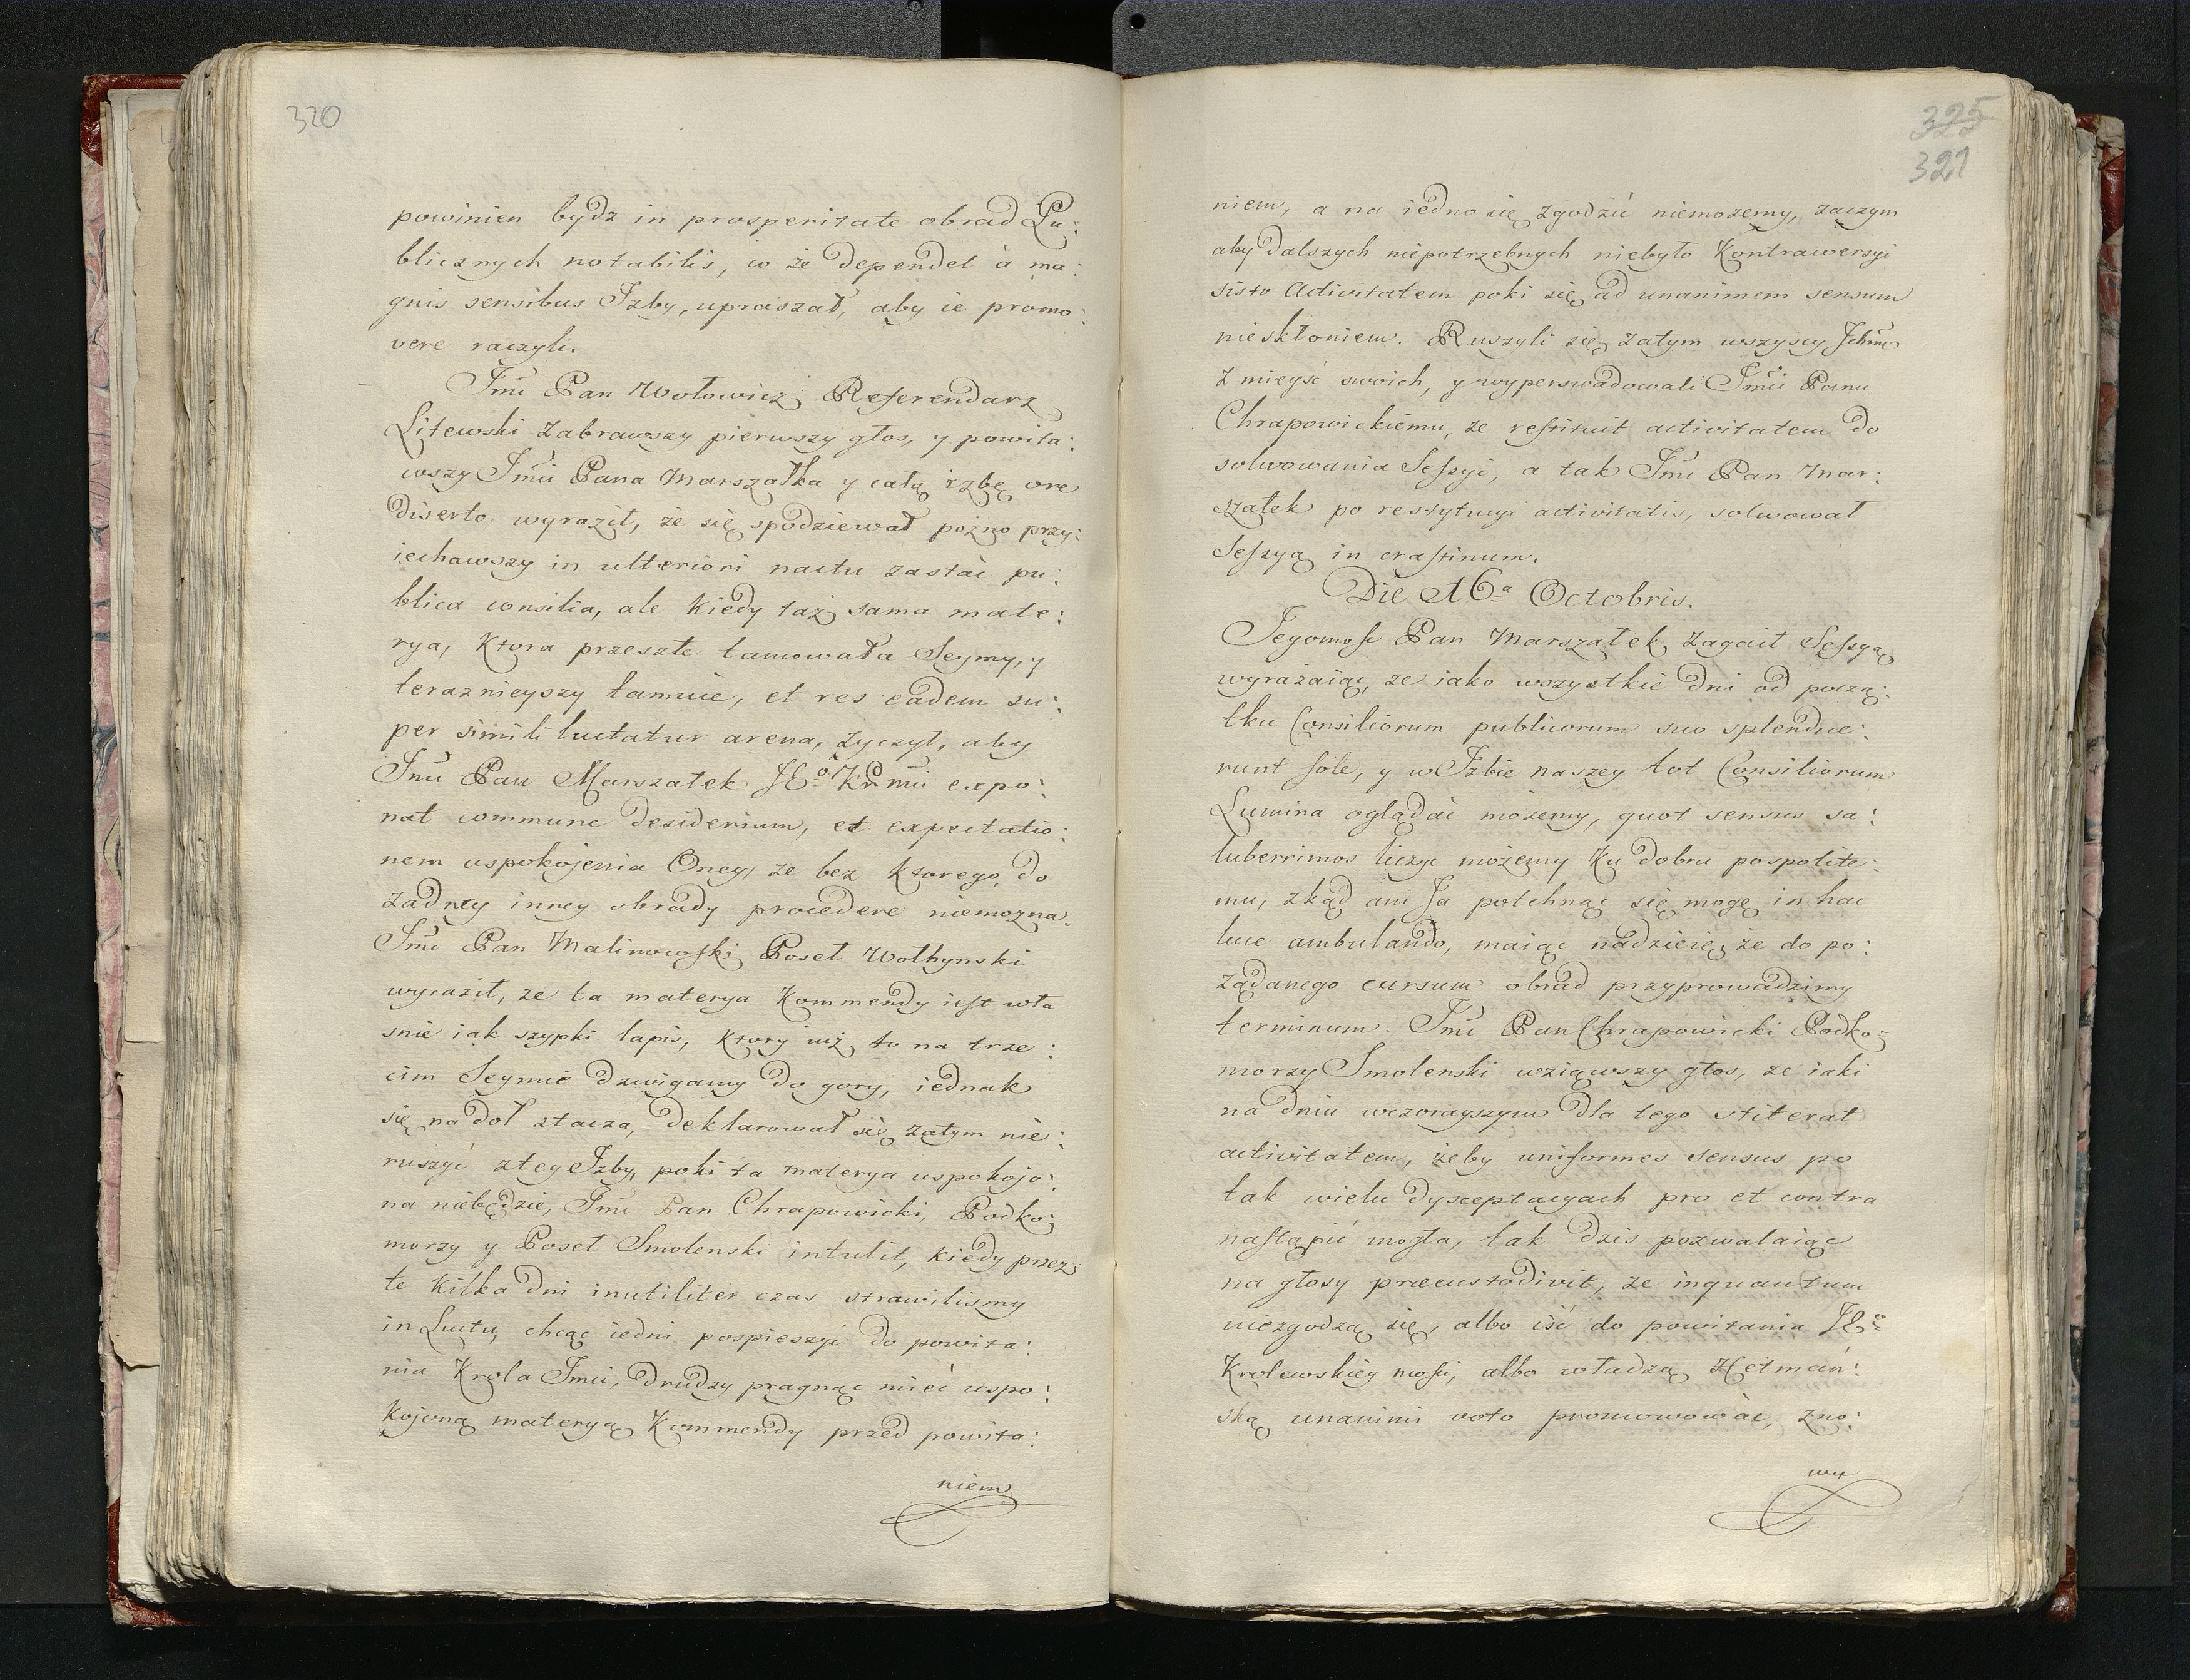 320
powinien bydz in prosperitate obrad Pu:
blicznych notabilis, co że dependet à ma:
gnis sensibus Izby, upraszał, aby ie promo:
vere raczyli.
Jmć Pan Wołowicz Referendarz
Litewski zabrawszy pierwszy głos, y powita:
wszy Jmći Pana Marszałka y całą izbę ore
diserto wyraził, że się spodziewał pozno przy:
iechawszy in ulteriori nactu zastać pu:
blica consilia, ale kiedy taż sama mate:
rya, ktora przeszłe tamowała Seymy, y
terazniejszy tamuie, et res eadem su:
per simili luctatur arena, życzył, aby
Jmć Pan Marszałek JEo KrMći expo:
nat commune desiderium, et expectatio:
nem uspokojenia Oney, ze bez ktorego, do
żadney inney obrady procedere niemozna.
Jmć Pan Malinowski Poseł Wołhynski
wyraził, ze ta materya Kommendy iest wła
snie iak szypki lapis, ktory iuż to na trze:
cim Seymie dzwigamy do gory, iednak
się na doł stacza, deklarował się zatym nie:
ruszyć z tey Izby, poki ta materya uspokojo:
na niebędzie, Jmć Pan Chrapowicki, Podko:
morzy y Poseł Smolenski intulit, kiedy przez
te kilka dni inutiliter czas strawilismy
in Luctu, chcąc iedni pospieszyć do powita:
nia Krola Jmci, drudzy pragnąc mieć uspo:
kojoną materyą Kommendy przed powita:
niem
325
321
niem, a na iedno się zgodzić niemozemy, zaczym
aby dalszych niepotrzebnych niebyło Kontrawersyi
sisto Activitatem poki się ad unanimem sensum
nieskłoniem. Ruszyli się zatym wszyscy Ichmć
z mieysc swoich, y wyperswadowali Jmći Panu
Chrapowickiemu, ze restituit activitatem do
solwowania Sessyi, a tak Jmć Pan Mar:
szałek po restytucyi activitatis, solwował
Sessyą in crastinum.
Die 16a Octobris.
Jegomość Pan Marszałek zagaił Sessyą
wyrażaiąc, ze iako wszystkie dni od począ:
tku Consiliorum publicorum suo splendue:
runt sole, y w Izbie naszey tot Consiliorum
Lumina oglądać możemy, quot sensus sa:
luberrimos liczyc możemy ku dobru pospolite:
mu, zkąd ani Ja potchnąc się mogę in hac
luce ambulando, maiąc nadzieię, że do po:
żądanego cursum obrad przyprowadzimy
terminum. Jmć Pan Chrapowicki Podko:
morzy Smolenski wziąwszy głos, ze iaki
na dniu wczorayszym dla tego stiterat
activitatem, żeby uniformes sensus po
tak wielu dysceptacyach pro et contra
nastąpić mogła, tak dzis pozwalaiąc
na głosy præcustodivit, ze inquantum
niezgodzą się, albo iść do powitania JEo
Krolewskiey mości, albo władzą Hetmań:
ską unanimi voto promowować, zno:
wu